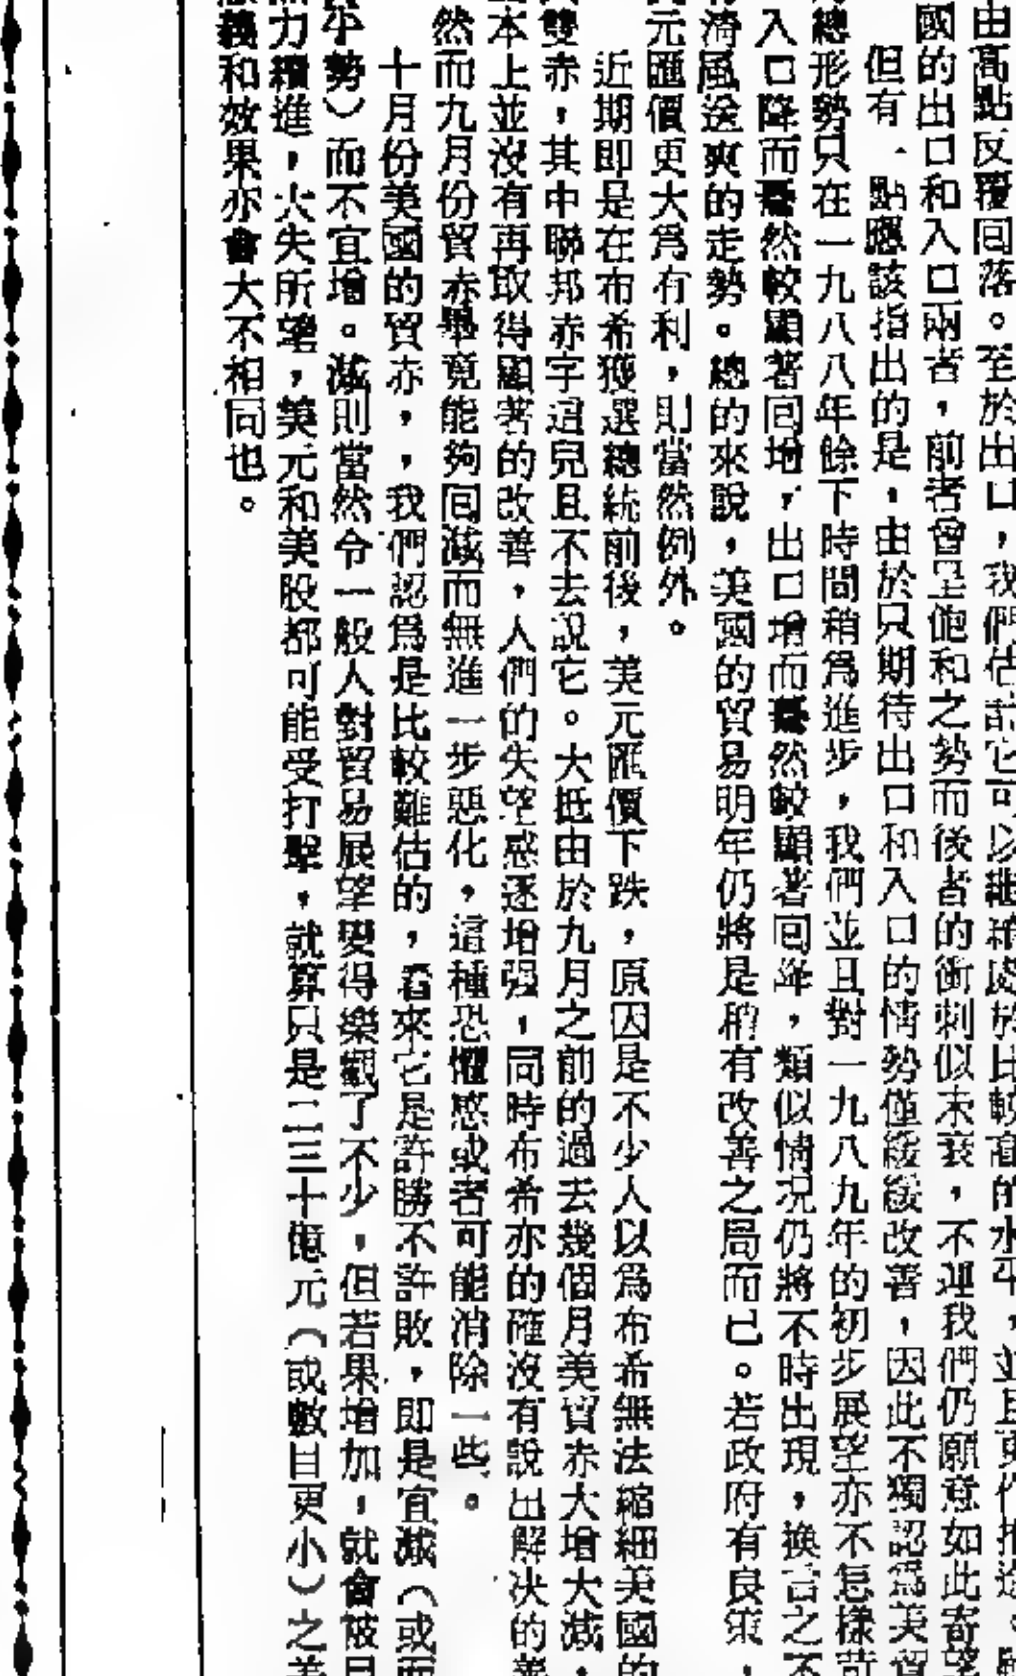 由高點反覆回落。至於出口，我們估計它可以繼續處於比較高的水平，並且更作推進。
國的出口和入口兩者，前者曾呈飽和之勢而後者的衝刺似未衰，不過我們仍願意如此寄望
但有一點應該指出的是，由於只期待出口和入口的情勢僅緩緩改善，因此不獨認爲美貿
總形勢只在一九八八年餘下時間稍爲進步，我們並且對一九八九年的初步展望亦不怎樣
入口降而驀然較顯著回增，出口增而驀然較顯著回降，類似情况仍將不時出現，換言之不
淸風送爽的走勢。總的來說，美國的貿易明年仍將是稍有改善之局而已。若政府有良策，
元匯價更大爲有利，則當然例外。
近期即是在布希獲選總統前後，美元匯價下跌，原因是不少人以爲布希無法縮細美國的
雙赤，其中聯邦赤字這兒且不去說它。大抵由於九月之前的過去幾個月美貿赤大增大減，
本上並沒有再取得顯著的改善，人們的失望感逐增强，同時布希亦的確沒有說出解决的善
然而九月份貿赤畢竟能夠回減而無進一步惡化，這種恐懼感或者可能消除一些。
十月份美國的貿赤，，我們認爲是比較難估的，看來它是許勝不許敗，即是宜減（或
小勢）而不宜增。減則當然令一般人對貿易展望變得樂觀了不少，但若果增加，就會被
力續進，大失所望，美元和美股都可能受打擊，就算只是二三十億元（或數目更小）之
義和效果亦會大不相同也。